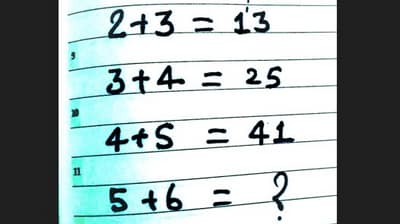 2+3 = 13
9
3+4 = 25
10
4+5 = 41
11
5+6 = ?